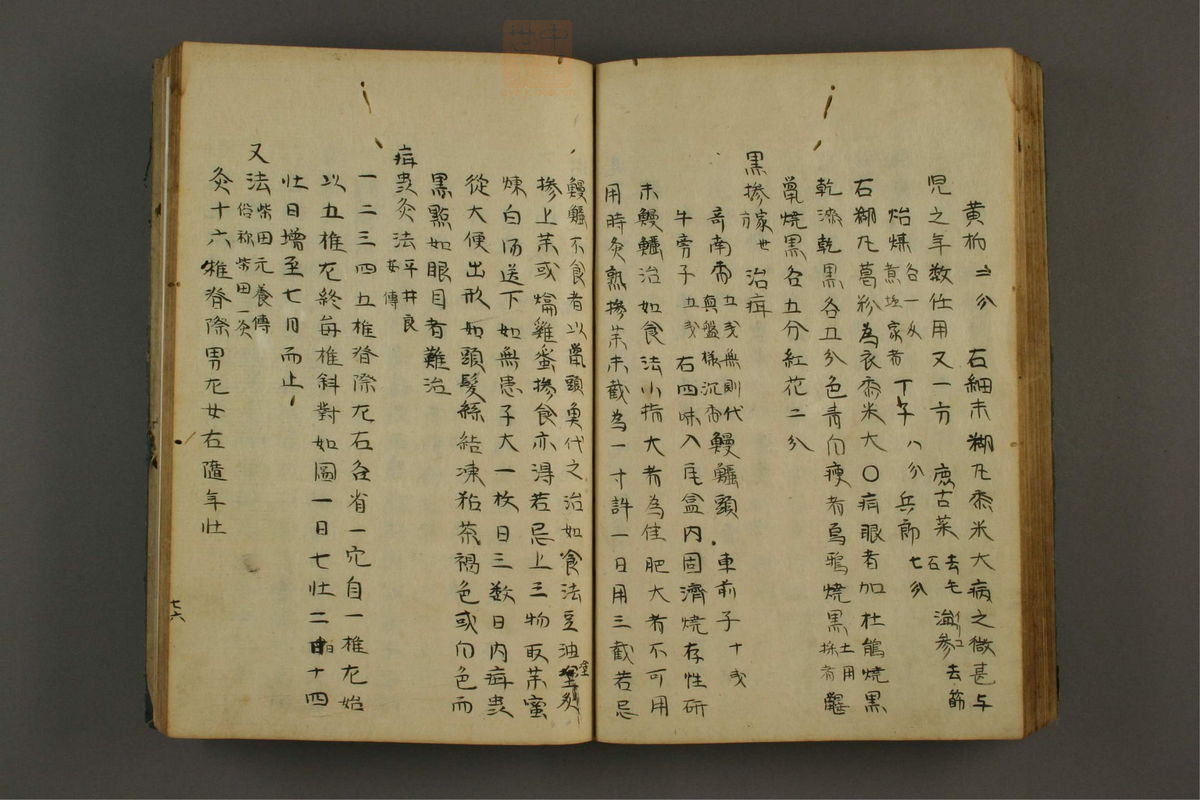 黄栁 二分 石細末糊凢黍米大病之微甚与
児之年数任用又一方 鹿古菜去毛石 海参去筋
炲煤各一匁煮塩家者 丁子八分 兵郎七分
石糊凢葛粉為衣黍米大〇病眼者加杜鵑燒黒
乾漆乾黒各五分色青白瘦者烏鴉燒黒土用採者 鼹
鼠燒黒各五分紅花二分
黒摻方 治疳
奇南香五戔無則代真盤様沉香 鰻鱺頭 車前子十戔
牛旁子五戔 右四味入瓦盒内固濟燒存性研
末鰻鱺治如食法小指大者為佳肥大者不可用
用時灸熟摻茉末截為一寸許一日用三截若忌
鰻鱺不食者以鱉頭奠代之治如食法豆油塗灸
摻上茉或爚雞蛋摻食亦得若忌上三物取茉蜜
煉白湯送下如無患子大一枚日三数日内疳虫
從大便出形如頭髮絲結凍粘茶褐色或白色而
黒點如眼目者難治
疳虫灸法平井良安傳
一二三四五椎脊際左右各省一穴自一椎左始
以五椎左終每椎斜對如圖一日七壮二日十四
壮日增至七月而止
又法柴田元養傳俗称柴田一灸
灸十六椎脊際男左女右隨年壮
七六